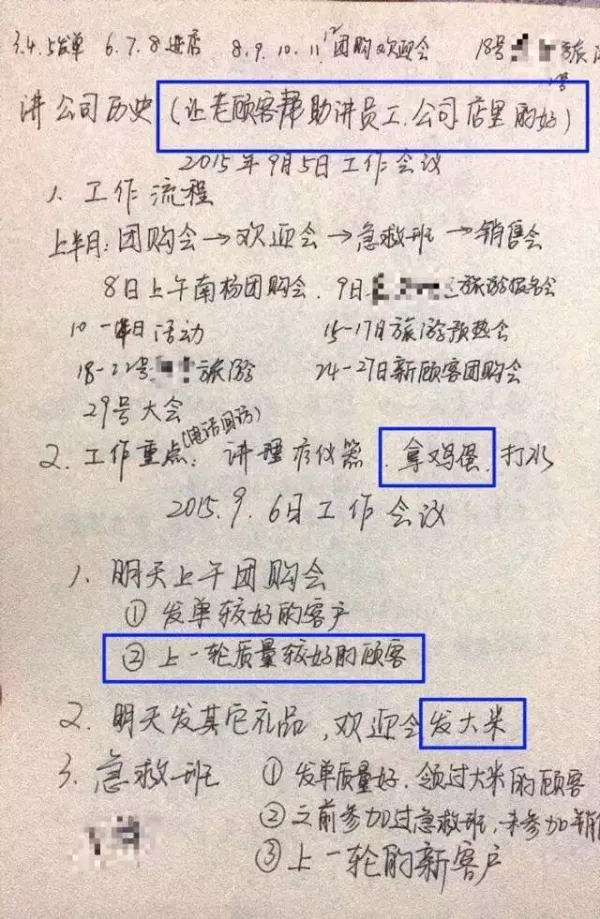 3.4.5发单 6.7.8进店 8.9.10.11.12团购欢迎会 18号 旅
讲公司历史(让老顾客帮助讲员工、公司店里的好)
2015年9月5日工作会议
1、工作流程
上半月:团购会→欢迎会→急救班→销售会
8日上午南杨团购会、9日 旅游报名会
10- 日活动 15-17日旅游预热会
18-22号 旅游 24-27日新顾客团购会
29号大会
(电话回访)
2、工作重点:讲理疗仪器、拿鸡蛋、打水
2015.9.6日工作会议
1、明天上午团购会
①发单较好的客户
②上一轮质量较好的顾客
2、明天发其它礼品,欢迎会发大米
3、急救班 ①发单质量好、领过大米的顾客
②之前参加过急救班,未参加销
③上一轮的新客户